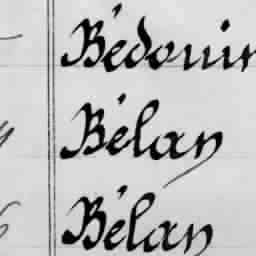 Bédouin
Bélan
Bélan